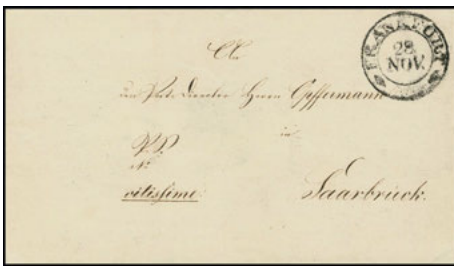 FRANKFORT
28
NOV.
An
den Post-Director Herrn Opfermann
in
P.P.
citissime.
Saarbrück.